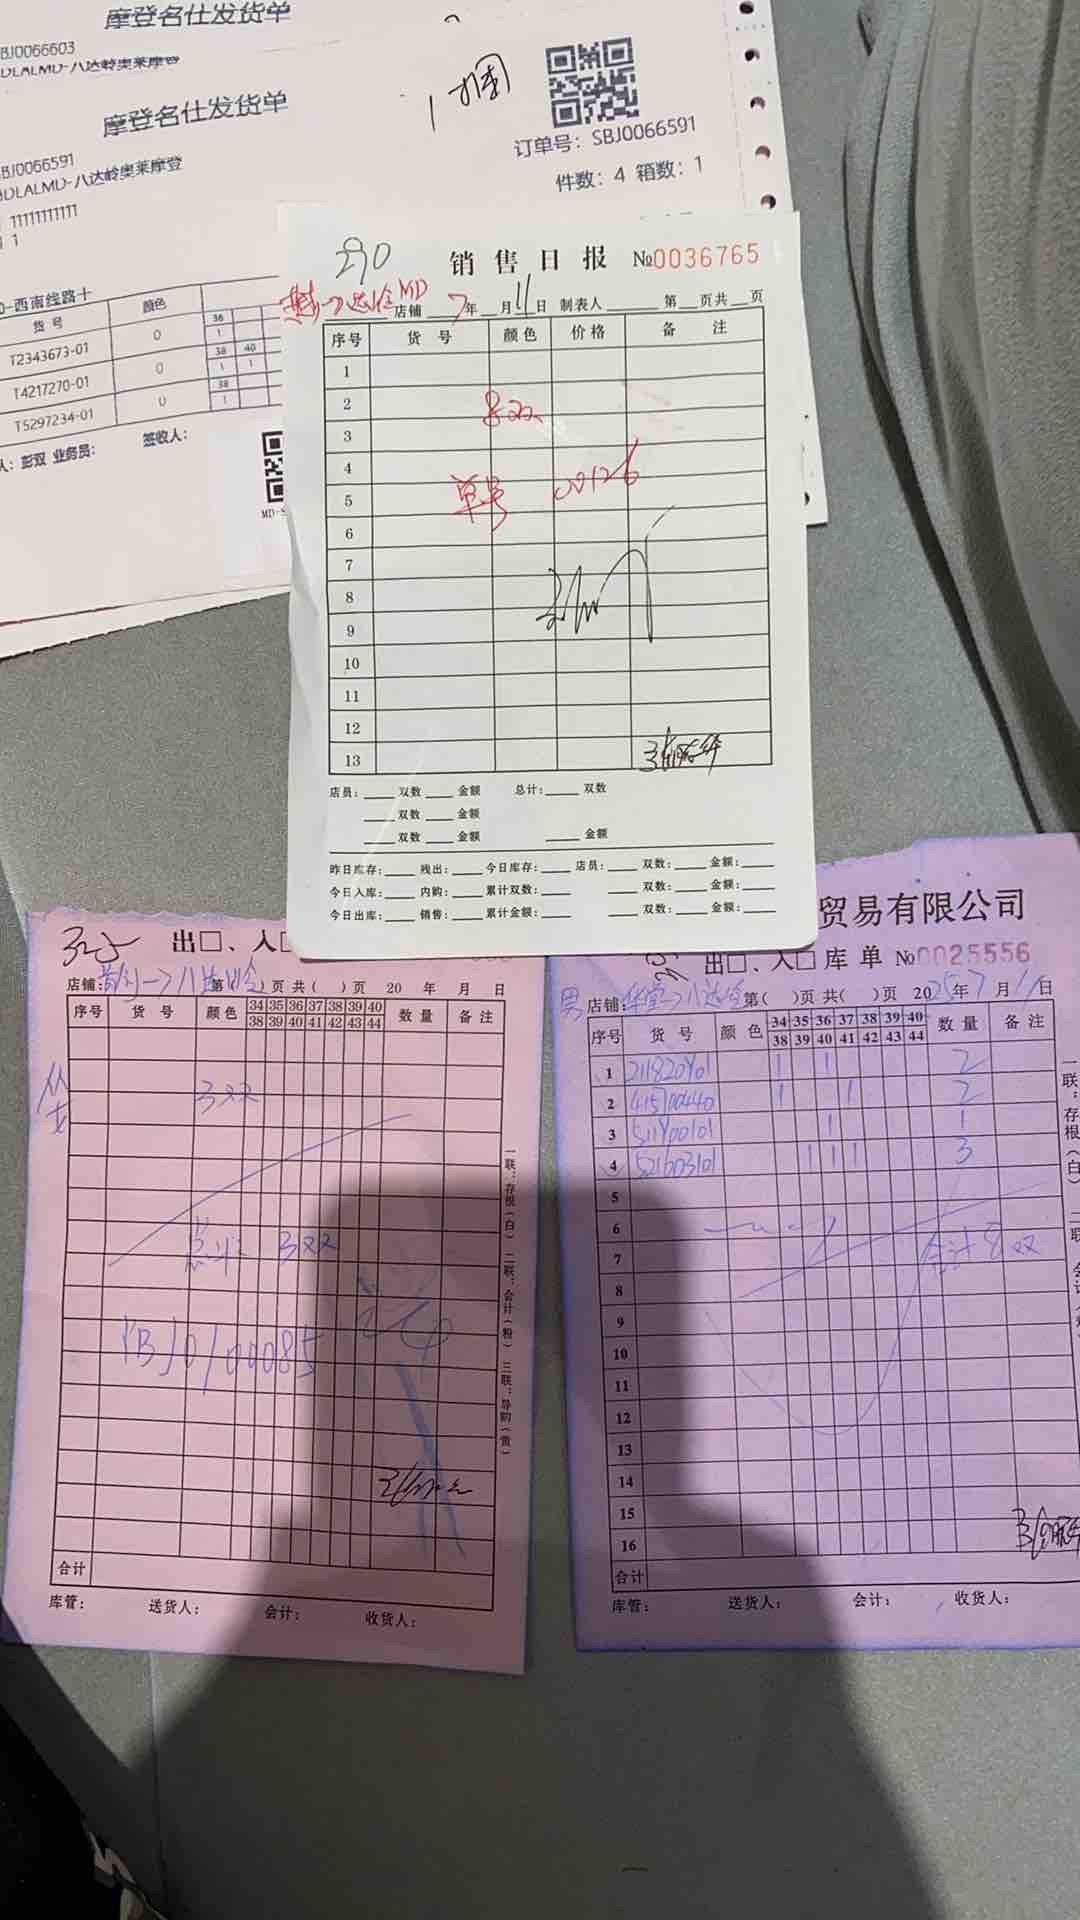 摩登名仕发货单
BJ0066603
DLALMD-八达岭奥莱摩登
摩登名仕发货单
1捆
BJ0066591
DLALMD-八达岭奥莱摩登
11111111111
1
订单号：SBJ0066591
件数：4 箱数：1
0-西南线路十
货号 颜色 36
T2343673-01 0 1
38 40
T4217270-01 0 1 1
38
T5297234-01 0 1
人：彭双 业务员： 签收人：
290
销售日报 №0036765
MD 店铺 7年 月11日 制表人 第 页共 页
序号 货号 颜色 价格 备注
1
2
8双
3
4
单号 00126
5
6
7
8
9
10
11
12
13
店员： 双数 金额 总计： 双数
双数 金额
双数 金额 金额
昨日库存： 残出： 今日库存： 店员： 双数： 金额：
今日入库： 内购： 累计双数： 双数： 金额：
今日出库： 销售： 累计金额： 双数： 金额：
325
出□、入□
店铺： 第( )页 共( )页 20 年 月 日
序号 货号 颜色 34 35 36 37 38 39 40 数量 备注
38 39 40 41 42 43 44
女
3双
总计：3双
BJ0100085
一联：存根（白） 二联：会计（粉） 三联：导购（黄）
合计
库管： 送货人： 会计： 收货人：
贸易有限公司
出□、入□库单 №0025556
男 店铺： 第( )页 共( )页 2025年7月11日
序号 货号 颜色 34 35 36 37 38 39 40 数量 备注
38 39 40 41 42 43 44
1 211820401 1 1 2
2 415700440 1 1 2
3 511400101 1 1
4 521603101 1 1 1 3
5
6
7 合计8双
8
9
10
11
12
13
14
15
16
合计
库管： 送货人： 会计： 收货人：
一联：存根（白）